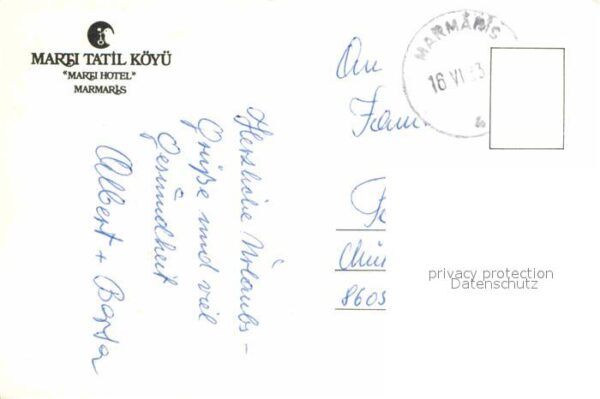 MARTI TATİL KÖYÜ
"MARTI HOTEL"
MARMARİS
Herzliche Urlaubs-
Grüße und viel
Gesundheit
Albert + Barta
MARMARİS
16 VI
An
Fam
Chür
8605
privacy protection
Datenschutz